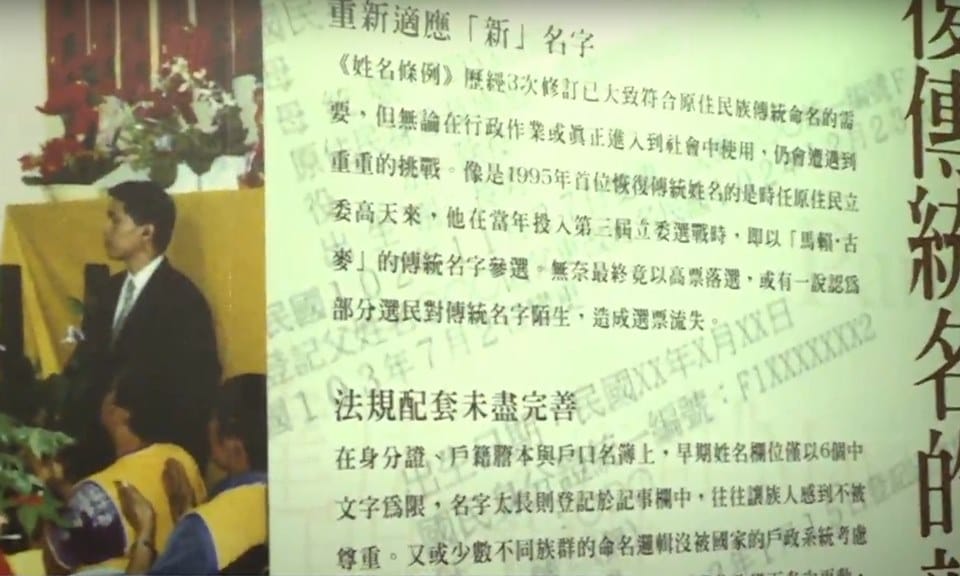 重新適應「新」名字
《姓名條例》歷經3次修訂已大致符合原住民族傳統命名的需
要，但無論在行政作業或真正進入到社會中使用，仍會遭遇到
重重的挑戰。像是1995年首位恢復傳統姓名的是時任原住民立
委高天來，他在當年投入第三屆立委選戰時，即以「馬賴·古
麥」的傳統名字參選。無奈最終竟以高票落選，或有一說認為
部分選民對傳統名字陌生，造成選票流失。
法規配套未盡完善
在身分證、戶籍謄本與戶口名簿上，早期姓名欄位僅以6個中
文字為限，名字太長則登記於記事欄中，往往讓族人感到不被
尊重。又或少數不同族群的命名邏輯沒被國家的戶政系統考慮
復傳統名的
民國XX年X月XX日
統一編號：F1XXXXXXX2
103年7月2